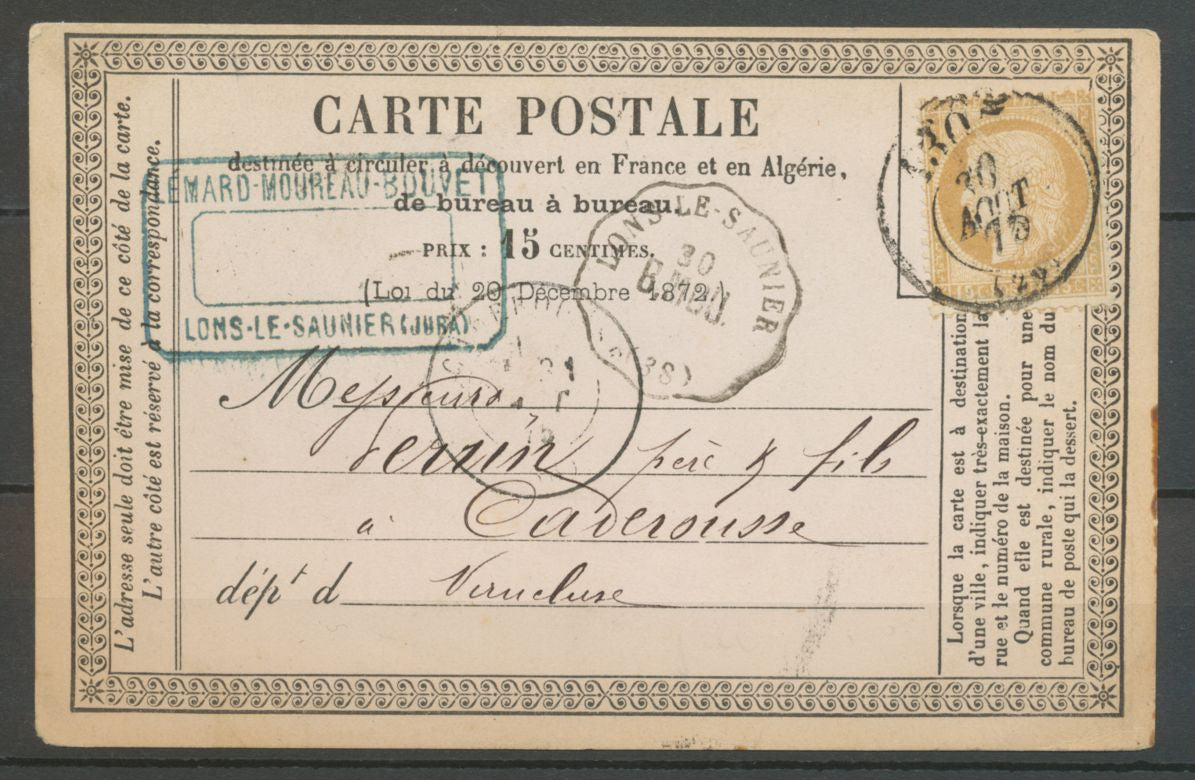 CARTE POSTALE
destinée à circuler à découvert en France et en Algérie,
de bureau à bureau.
PRIX : 15 CENTIMES.
(Loi du 20 Décembre 1872.)
LEMARD-MOUREAU-BOUVET
LONS-LE-SAUNIER (JURA)
LONS-LE-SAUNIER
30
AOU.
(38)
LYON
30
AOUT
75
21
75
Messieurs
père & fils
à Caderousse
dépt d Vaucluse
L'adresse seule doit être mise de ce côté de la carte.
L'autre côté est réservé à la correspondance.
Lorsque la carte est à destination
d'une ville, indiquer très-exactement la
rue et le numéro de la maison.
Quand elle est destinée pour une
commune rurale, indiquer le nom du
bureau de poste qui la dessert.